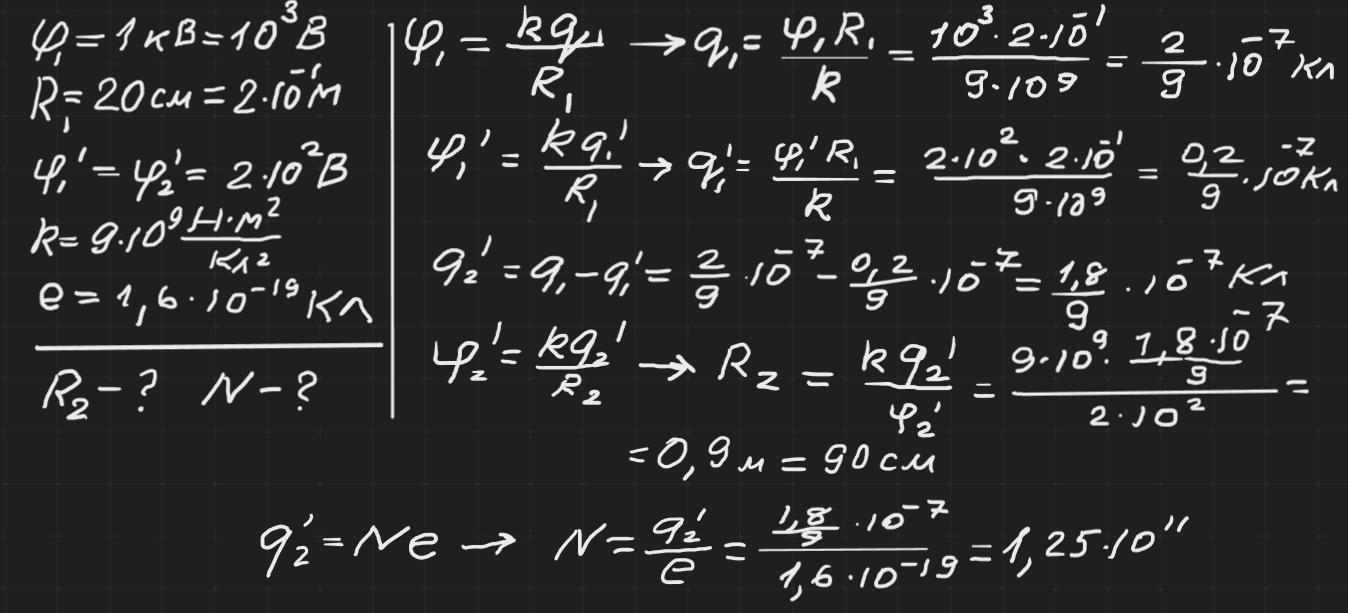 φ₁ = 1 кВ = 10³ В
R₁ = 20 см = 2·10⁻¹ м
φ₁' = φ₂' = 2·10² В
k = 9·10⁹ Н·м²/Кл²
e = 1,6·10⁻¹⁹ Кл
R₂ - ? N - ?
φ₁ = kq₁/R₁ → q₁ = φ₁R₁/k = 10³·2·10⁻¹/9·10⁹ = 2/9·10⁻⁷ Кл
φ₁' = kq₁'/R₁ → q₁' = φ₁'R₁/k = 2·10²·2·10⁻¹/9·10⁹ = 0,2/9·10⁻⁷ Кл
q₂' = q₁ - q₁' = 2/9·10⁻⁷ - 0,2/9·10⁻⁷ = 1,8/9·10⁻⁷ Кл
φ₂' = kq₂'/R₂ → R₂ = kq₂'/φ₂' = 9·10⁹·1,8·10⁻⁷/9/2·10² =
= 0,9 м = 90 см
q₂' = Ne → N = q₂'/e = 1,8/9·10⁻⁷/1,6·10⁻¹⁹ = 1,25·10¹¹